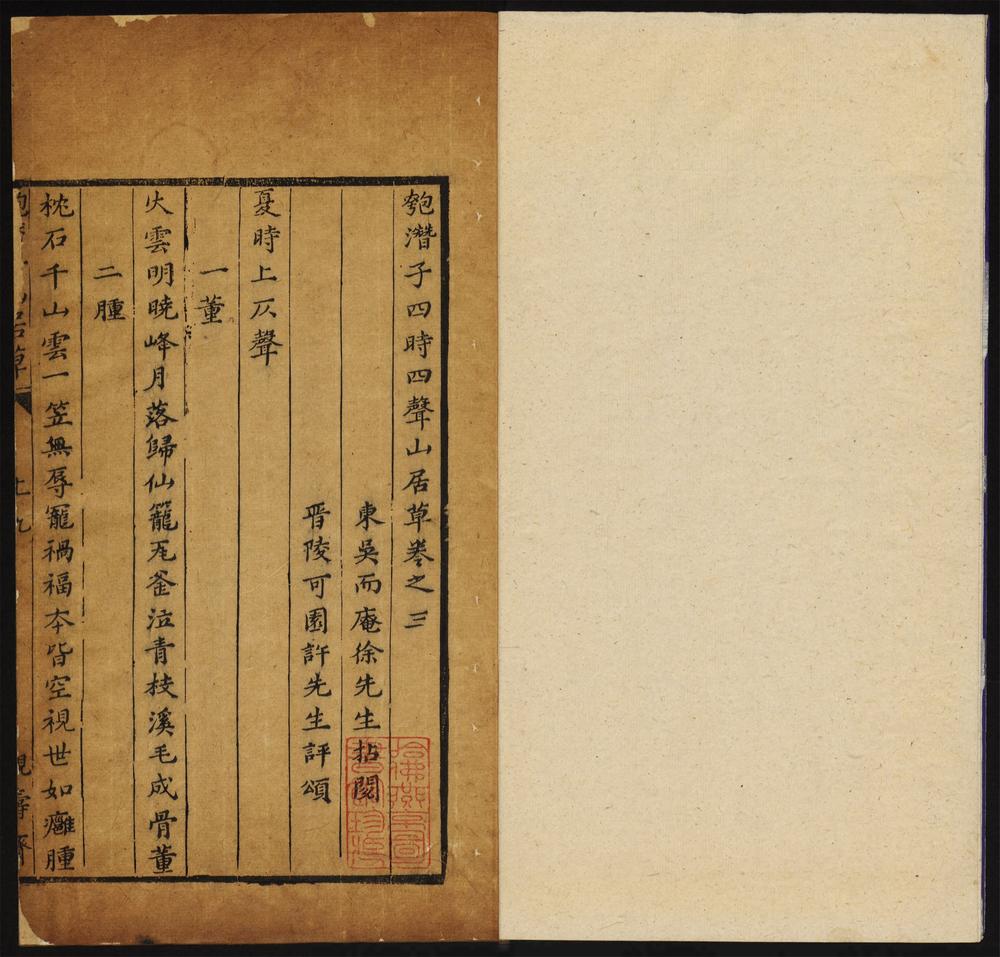 匏潛子四時四聲山居草卷之三
東吳而庵徐先生拈閱
晋陵可園許先生評頌
夏時上仄聲
一董
火雲明曉峰月落歸仙籠瓦釜泣青枝溪毛成骨董
二腫
枕石千山雲一笠無辱寵禍福本皆空視世如癰腫
哈佛燕京圖